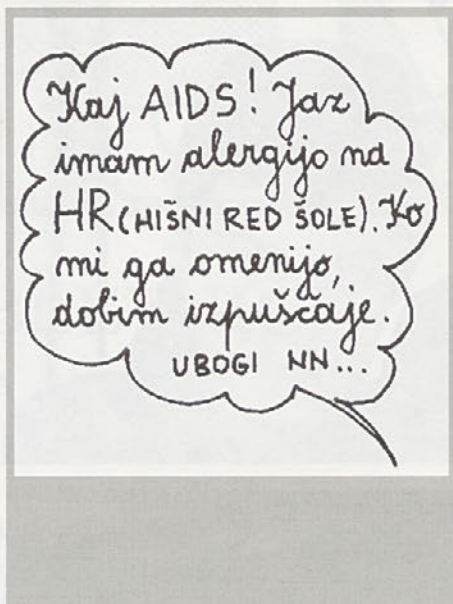 Kaj AIDS! Jaz
imam alergijo na
HR (HIŠNI RED ŠOLE). Ko
mi ga omenijo,
dobim izpuščaje.
UBOGI NN...